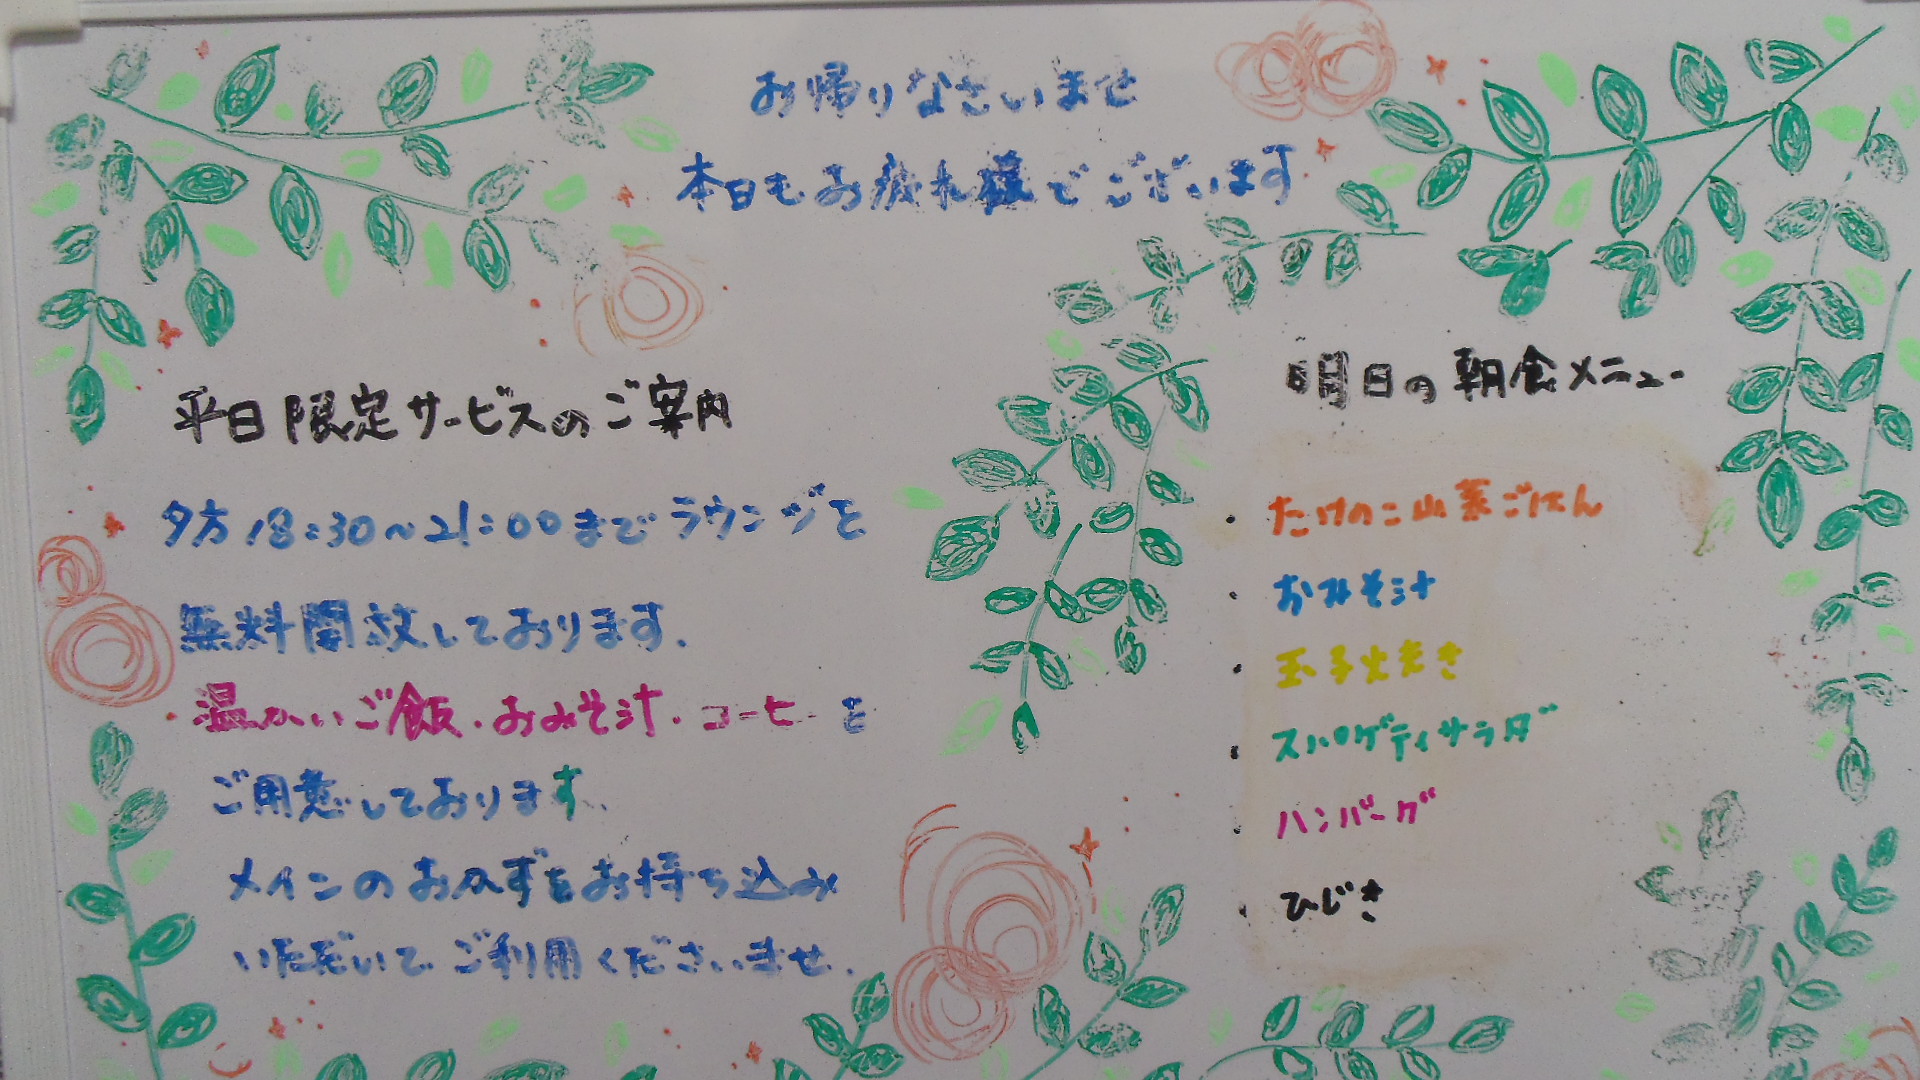 お帰りなさいませ
本日もお疲れ様でございます
平日限定サービスのご案内
夕方18:30～21:00までラウンジを
無料開放しております.
・温かいご飯・おみそ汁・コーヒーを
ご用意しております、
メインのおかずをお持ち込み
いただいてご利用くださいませ.
明日の朝食メニュー
・たけのこ山菜ごはん
・おみそ汁
・玉子焼き
・スパゲティサラダ
・ハンバーグ
・ひじき